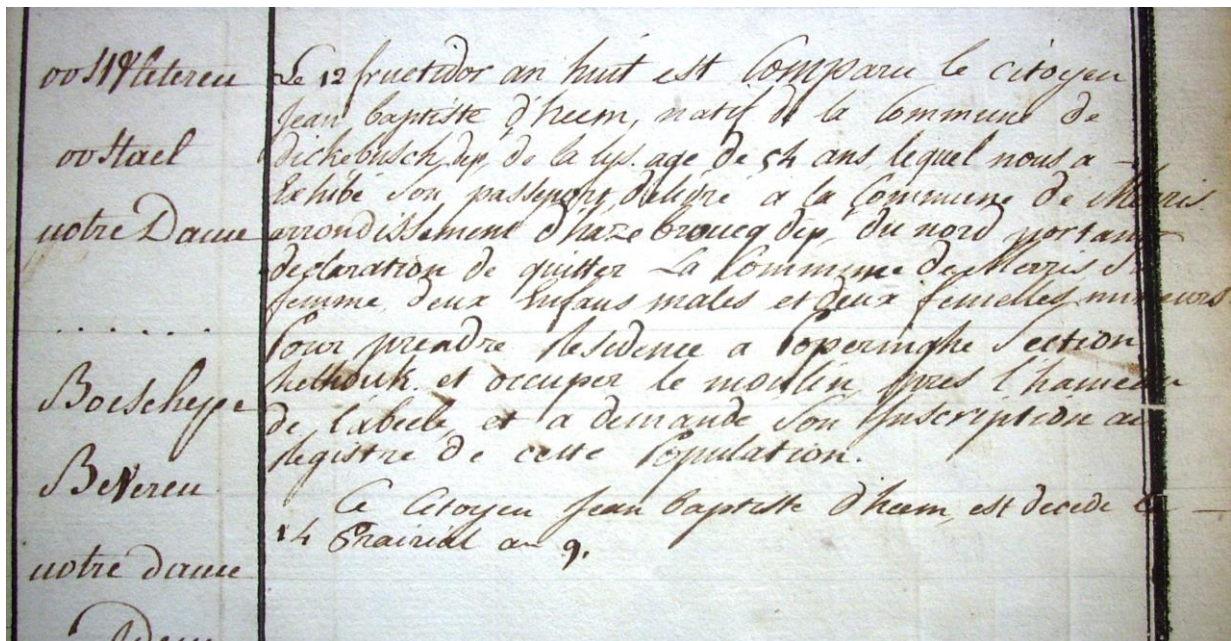 oostvleteren
oostael
notre Dame
. . . . . .
Boeschepe
Beveren
notre dame
Idem
Le 12 fructidor an huit est Comparu le citoyen
Jean baptiste d'heem, natif de la Commune de
dickebusch, dep. de la lys. age de 54 ans, lequel nous a
Exhibé son passeport, delivré a la Commune de Merris
arrondissement d'hazebroucq dep. du nord portant
declaration de quitter La Commune de Merris sa
femme, deux Enfans males et deux femelles mineurs
Pour prendre Residence a Poperinghe Section
helhouk. et occuper le moulin pres l'hameau
de l'abeele, et a demande son Inscription au
Registre de cette Population.
Ce Citoyen Jean baptiste d'heem, est decede le
14 Prairial an 9.